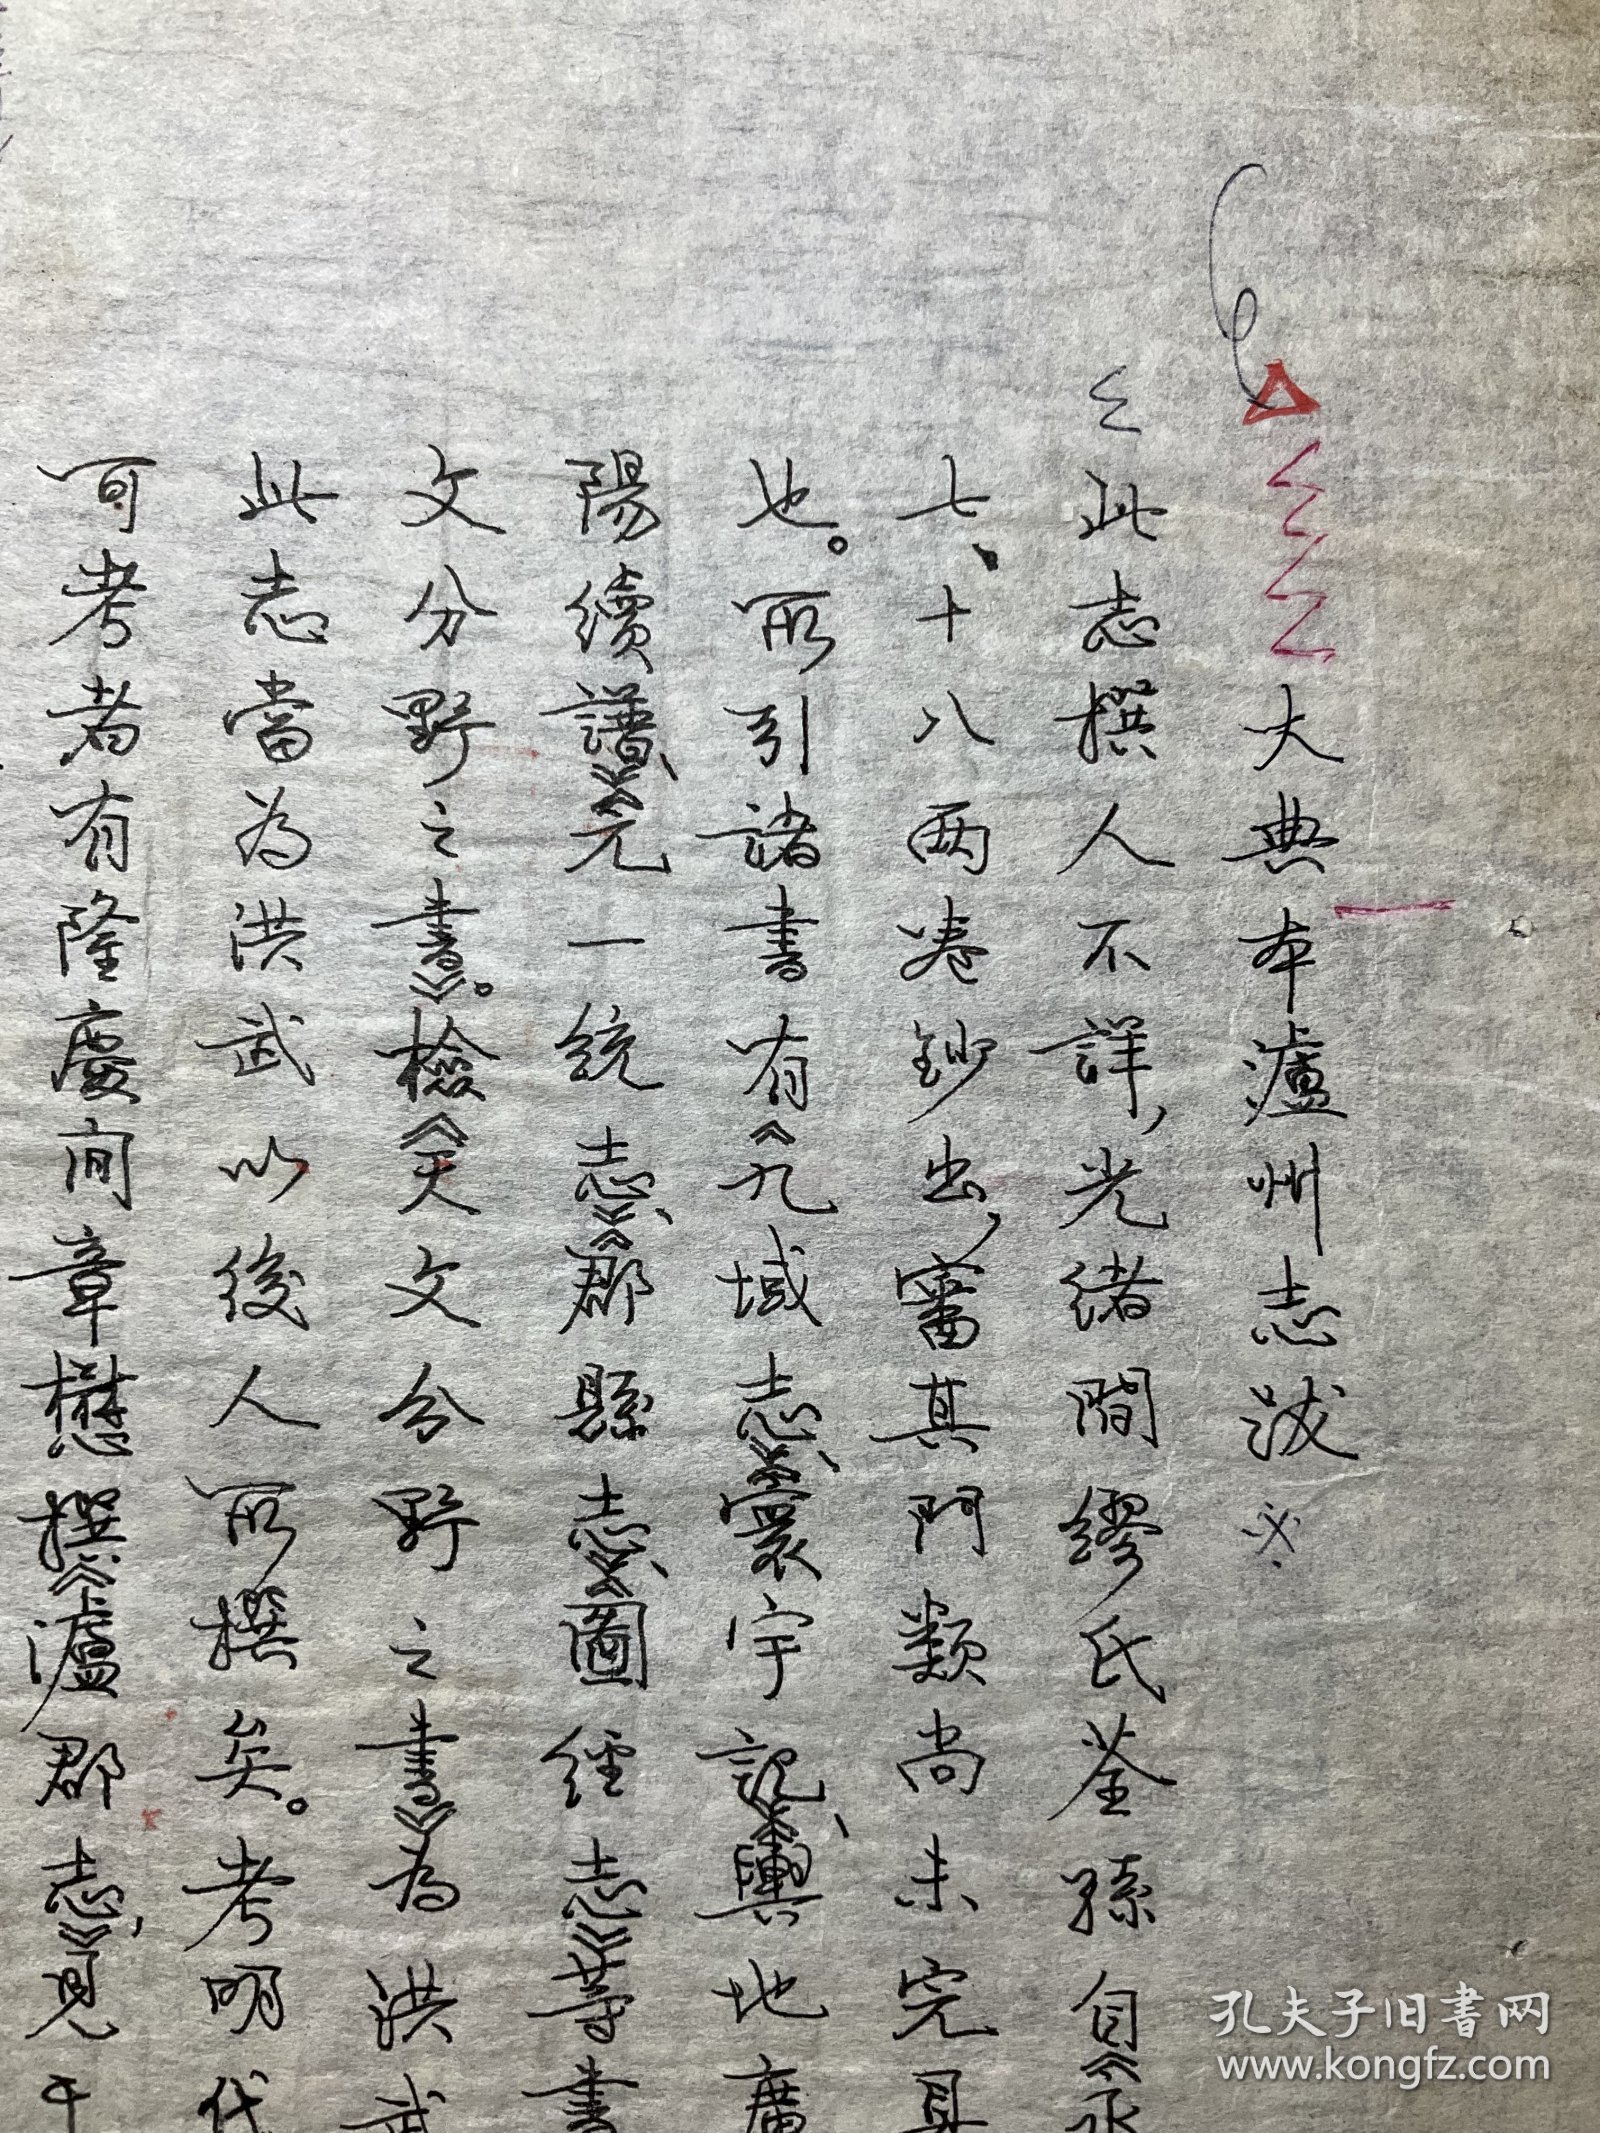 大典本瀘州志跋
此志撰人不詳，光緒間繆氏荃孫自《永
七、十八兩卷鈔出，審其門類尚未完具
也。所引諸書有《九域志》、《寰宇記》、《輿地廣
陽續譜》、《元一統志》、《郡縣志》、《圖經志》等書
文分野之書》。檢《天文分野之書》為洪武
此志當為洪武以後人所撰矣。考明代
可考者有隆慶间章懋撰《瀘郡志》，見千
孔夫子旧书网
www.kongfz.com